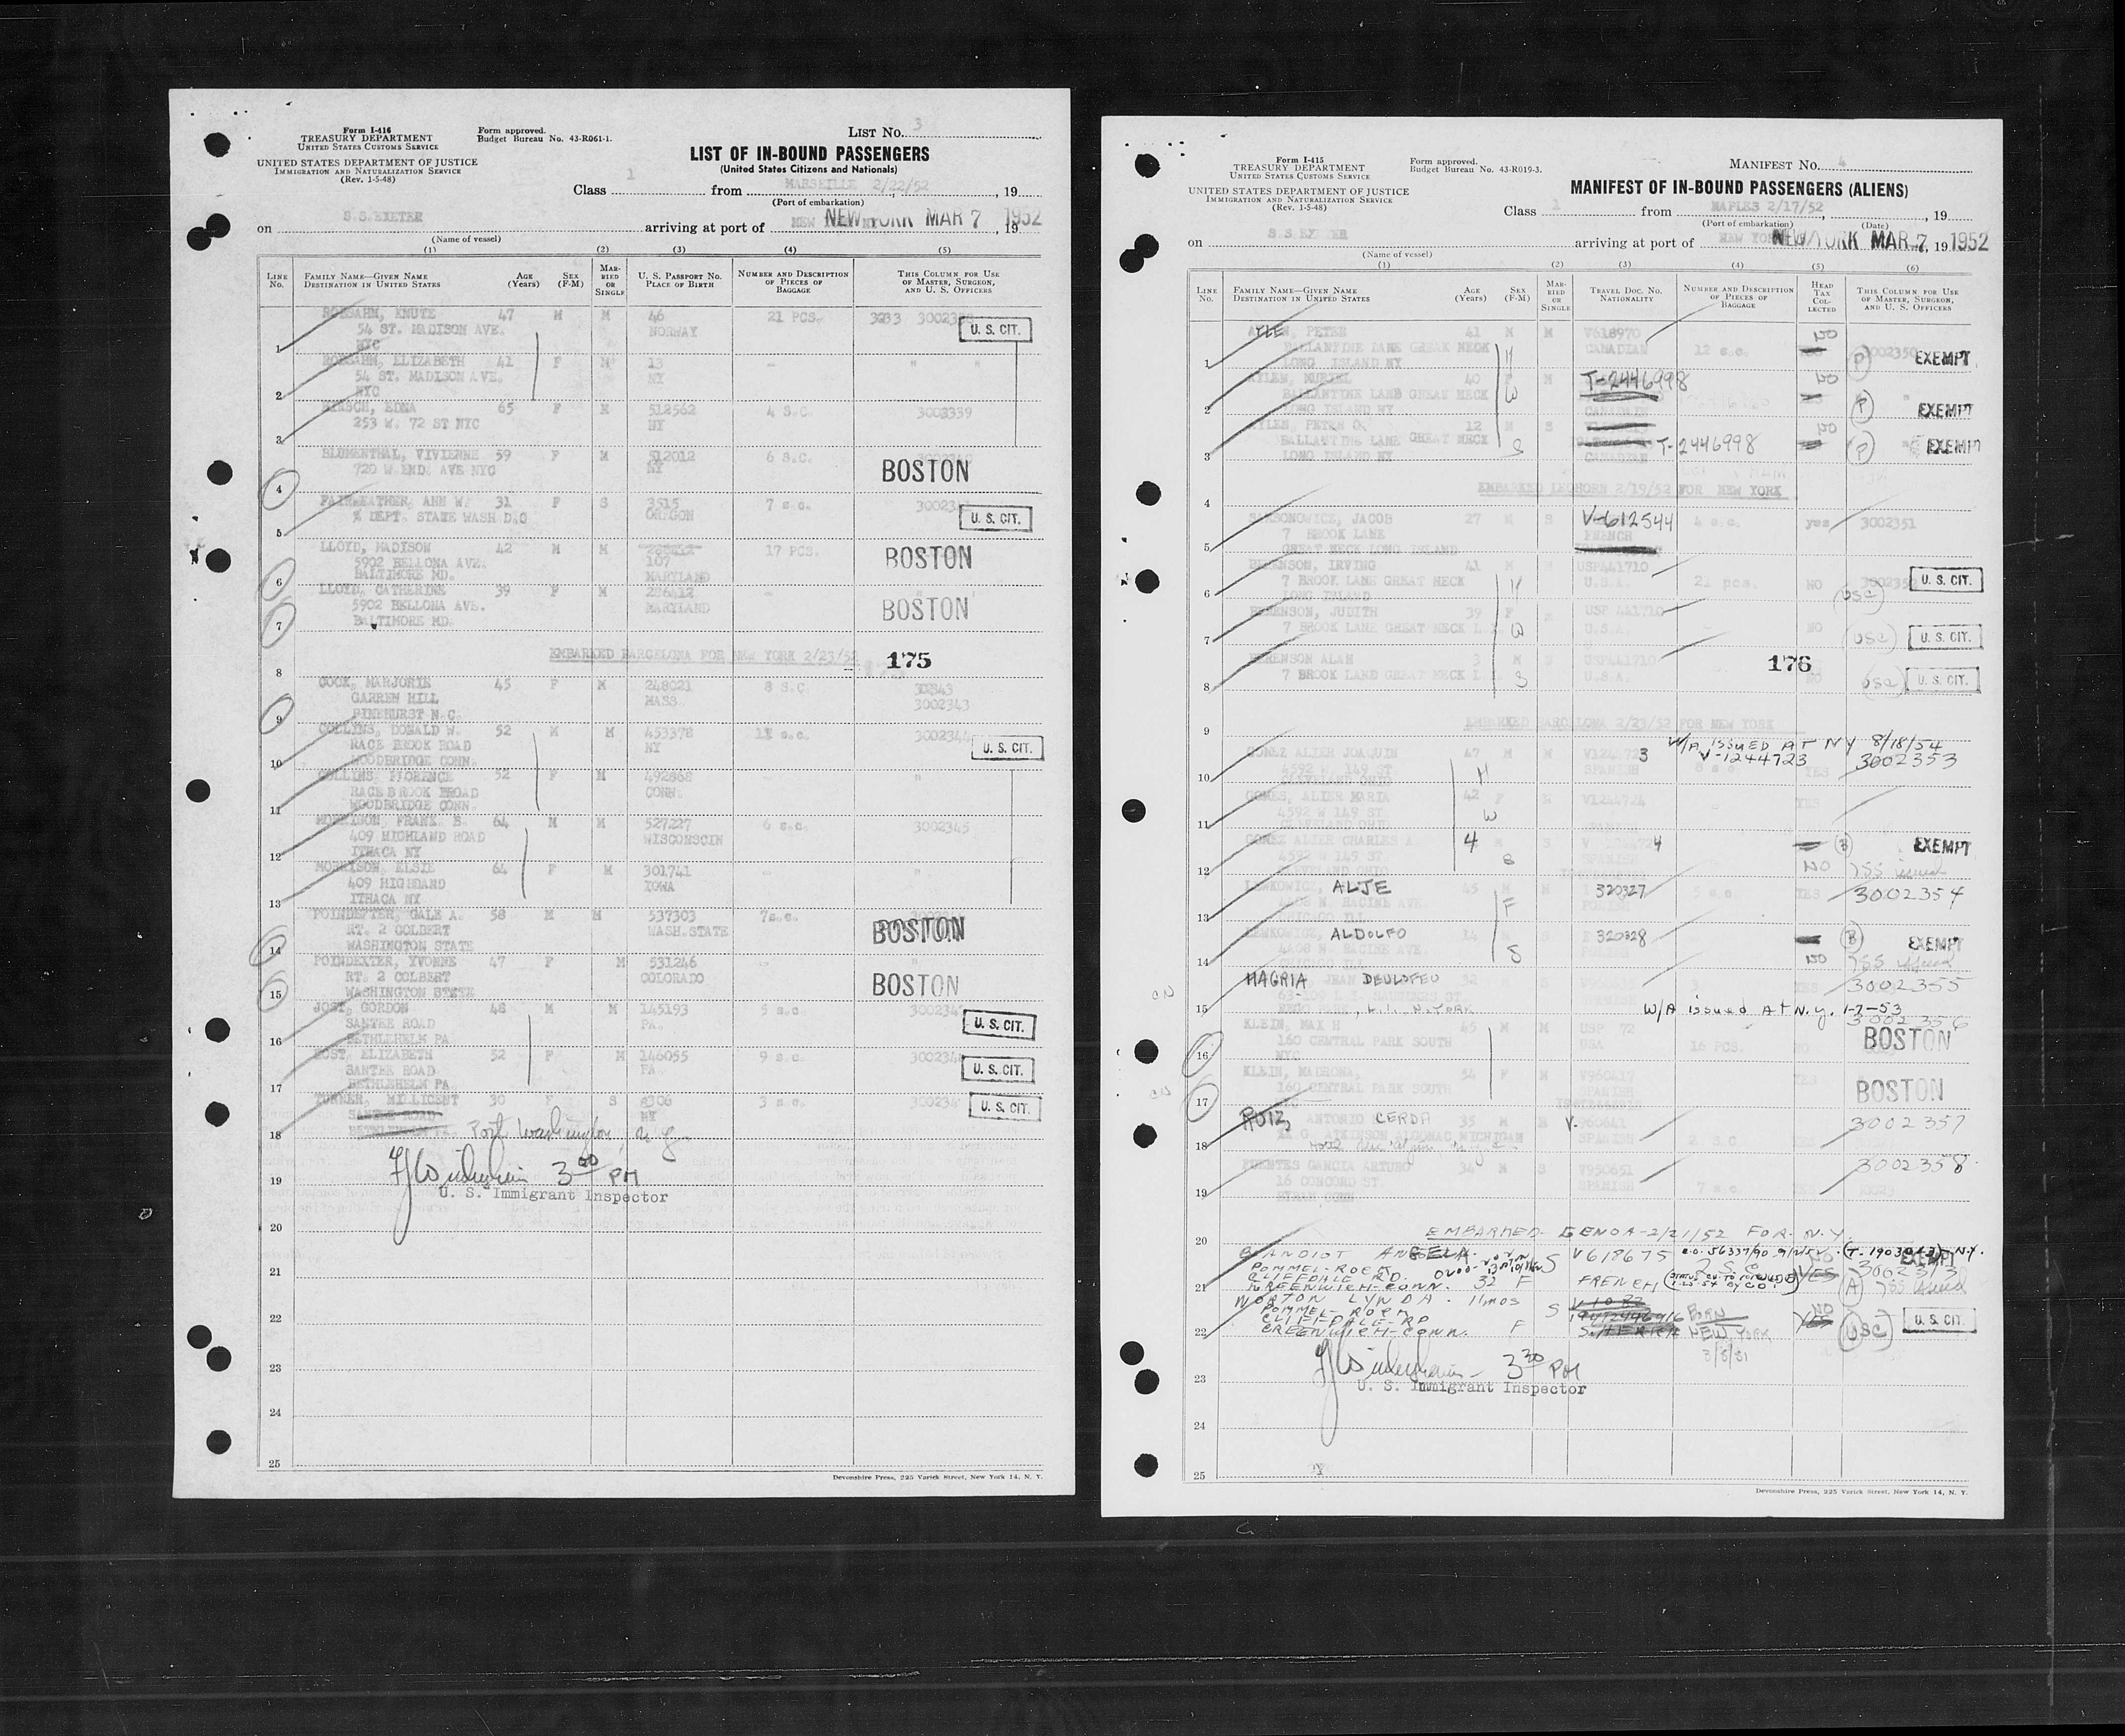 Form I-416
TREASURY DEPARTMENT
UNITED STATES CUSTOMS SERVICE
UNITED STATES DEPARTMENT OF JUSTICE
IMMIGRATION AND NATURALIZATION SERVICE
(Rev. 1-5-48)
Form approved.
Budget Bureau No. 43-R061-1.
LIST No. 3
LIST OF IN-BOUND PASSENGERS
(United States Citizens and Nationals)
Class 1 from MARSEILLE 2/22/52, 19
(Port of embarkation)
on S.S.EXETER arriving at port of NEW YORK MAR 7 1952
(Name of vessel)
(1) (2) (3) (4) (5)
LINE No. FAMILY NAME—GIVEN NAME DESTINATION IN UNITED STATES AGE (Years) SEX (F-M) MARRIED OR SINGLE U. S. PASSPORT No. PLACE OF BIRTH NUMBER AND DESCRIPTION OF PIECES OF BAGGAGE THIS COLUMN FOR USE OF MASTER, SURGEON, AND U. S. OFFICERS
KNUTE 47 M M 46 21 PCS. U. S. CIT.
54 ST. MADISON AVE. NORWAY
1 NYC
ELIZABETH 41 F M 13
54 ST. MADISON AVE. NY
2 NYC
HIRSCH, EDNA 65 F M 512562 4 S.C. 3002339
253 W. 72 ST NYC NY
3
BLUMENTHAL, VIVIENNE 59 F M 512012 6 S.C. BOSTON
720 W.END. AVE NYC NY
4
FAIRWEATHER, ANN W. 31 F S 3515 7 s.c. U. S. CIT.
% DEPT. STATE WASH D.C OREGON
5
LLOYD, MADISON 42 M M 17 PCS. BOSTON
5902 BELLONA AVE. 107
6 BALTIMORE MD. MARYLAND
LLOYD, CATHERINE 39 F M 286412 BOSTON
5902 BELLONA AVE. MARYLAND
7 BALTIMORE MD.
EMBARKED BARCELONA FOR NEW YORK 2/23/52 175
8
COOK, MARJORIE 45 F M 248021 8 S.C.
GARREN HILL MASS. 3002343
9 PINEHURST N.C.
COLLINS, DONALD W. 52 M M 453378 s.c. 3002344 U. S. CIT.
RACE BROOK ROAD NY
10 WOODBRIDGE CONN.
COLLINS, FLORENCE 52 F M "
RACE BROOK BROAD CONN.
11 WOODBRIDGE CONN.
MORRISON, FRANK B. 64 M M 527227 6 s.c. 3002345
409 HIGHLAND ROAD WISCONSCIN
12 ITHACA NY
MORRISON, ELSIE 64 F M 301741 "
409 HIGHLAND IOWA
13 ITHACA NY
POINDEXTER, GALE A. 58 M M 537303 7s.c. BOSTON
RT. 2 COLBERT WASH.STATE
14 WASHINGTON STATE
POINDEXTER, YVONNE 47 F M 531246
RT. 2 COLBERT COLORADO BOSTON
15 WASHINGTON STATE
JOST, GORDON 48 M M 145193 5 s.c. U. S. CIT.
SANTEE ROAD PA.
16 BETHLEHEM PA
JOST, ELIZABETH 52 F M 146055 9 s.c. U. S. CIT.
SANTEE ROAD PA.
17 BETHLEHEM PA.
TURNER, MILLICENT 30 F S 3 s.c. U. S. CIT.
SANTEE ROAD NY
18 Port Washington, n y
19 3 00 PM
U. S. Immigrant Inspector
20
21
22
23
24
25
Devonshire Press, 225 Varick Street, New York 14, N. Y.
Form I-415
TREASURY DEPARTMENT
UNITED STATES CUSTOMS SERVICE
UNITED STATES DEPARTMENT OF JUSTICE
IMMIGRATION AND NATURALIZATION SERVICE
(Rev. 1-5-48)
Form approved.
Budget Bureau No. 43-R019-3.
MANIFEST No. 4
MANIFEST OF IN-BOUND PASSENGERS (ALIENS)
Class 1 from NAPLES 2/17/52, 19
(Port of embarkation) (Date)
on S.S.EXETER arriving at port of NEW YORK MAR 7, 1952
(Name of vessel)
(1) (2) (3) (4) (5) (6)
LINE No. FAMILY NAME—GIVEN NAME DESTINATION IN UNITED STATES AGE (Years) SEX (F-M) MARRIED OR SINGLE TRAVEL DOC. NO. NATIONALITY NUMBER AND DESCRIPTION OF PIECES OF BAGGAGE HEAD TAX COLLECTED THIS COLUMN FOR USE OF MASTER, SURGEON, AND U. S. OFFICERS
AYLEN, PETER 41 M M V618970 NO
BALLANTINE LANE GREAK NECK H CANADIAN 12 s.c. 3002350 EXEMPT
1 LONG ISLAND NY P
AYLEN, MURIEL 40 F M T-2446998 NO
BALLANTINE LANE GREAT NECK W P EXEMPT
2 LONG ISLAND NY CANADIAN
AYLEN, PETER 12 M S NO
BALLANTINE LANE GREAT NECK T-2446998 P EXEMPT
3 LONG ISLAND NY S CANADIAN
EMBARKED LEGHORN 2/19/52 FOR NEW YORK
4
JACOB 27 M S V-612544 4 s.c. yes 3002351
7 BROOK LANE FRENCH
5 GREAT NECK LONG ISLAND
BERENSON, IRVING 41 M USP441710 U. S. CIT.
7 BROOK LANE GREAT NECK H U.S.A. 21 pcs. NO
6 LONG ISLAND USC
BERENSON, JUDITH 39 F USP 441710
7 BROOK LANE GREAT NECK L.I. W U.S.A. NO USC U. S. CIT.
7
BERENSON ALAN 3 M 176
8 7 BROOK LAND GREAT NECK L.I. S U.S.A. NO USC U. S. CIT.
EMBARKED BARCELONA 2/23/52 FOR NEW YORK
9 W/A ISSUED AT NY 8/18/54
GOMEZ ALIER JOAQUIN 47 M M 3 V-1244723 3002353
4592 W. 149 ST H SPANISH YES
10
GOMES, ALIER MARIA 42 F M V1244724 YES
4592 W 149 ST. W
11
GOMEZ ALIER CHARLES 4 S 4 B EXEMPT
4592 W 149 ST. S NO
12 CLEVELAND OHIO
LEWKOWICZ, ALJE 45 M 320327 5 s.c. YES 3002354
4408 N. RACINE AVE. F
13 CHICAGO ILL
LEWKOWICZ, ALDOLFO 14 320328 B EXEMPT
4408 N. RACINE AVE. S NO
14
MAGRIA JEAN DEULOFEU 32 3002355
15 W/A issued AT N.Y. 1-7-53
KLEIN, MAX H 45 M M BOSTON
160 CENTRAL PARK SOUTH USA 16 PCS. NO
16 NYC
KLEIN, MADRONA, 54 F M V960417 YES BOSTON
160 CENTRAL PARK SOUTH
17
RUIZ, ANTONIO CERDA 35 M V. 3002357
ATKINSON ALGONAC MICHIGAN SPANISH 2 S.C
18
FUENTES GARCIA ARTURO 34 M S V950651 3002358
16 CONCORD ST. SPANISH 7 s.c.
19
20 EMBARKED GENOA-2/21/52 FOR N.Y.
ANGELA S V618675 EXEMPT
POMMEL-ROCK
CLIFFDALE RD.
21 GREENWICH-CONN. 32 F FRENCH YES A
NORTON LYNDA. 11mos S NO
POMMEL-ROCK BORN
CLIFFDALE-RD NEW YORK USC U. S. CIT.
22 GREENWICH-CONN. F 3/8/51
3 30 PM
U. S. Immigrant Inspector
23
24
25
Devonshire Press, 225 Varick Street, New York 14, N. Y.